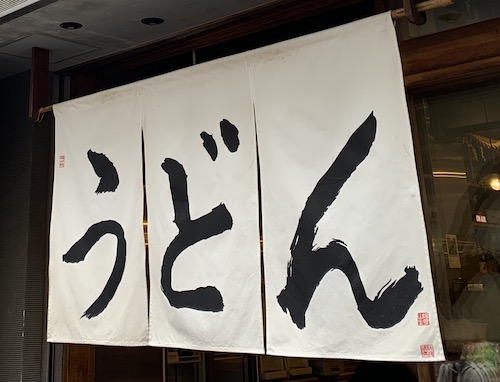 うどん